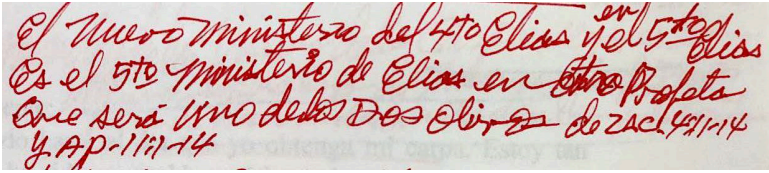 El Nuevo Ministerio del 4to Elias y el en 5to Elias
Es el 5to Ministerio de Elias en otro Profeta
Que será Uno de los Dos Olivos de ZAC. 4:1-14
y AP. 11:1-14